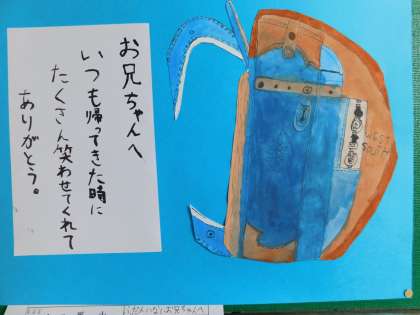 お兄ちゃんへ
いつも帰ってきた時に
たくさん笑わせてくれて
ありがとう。
WEST
SOUTH